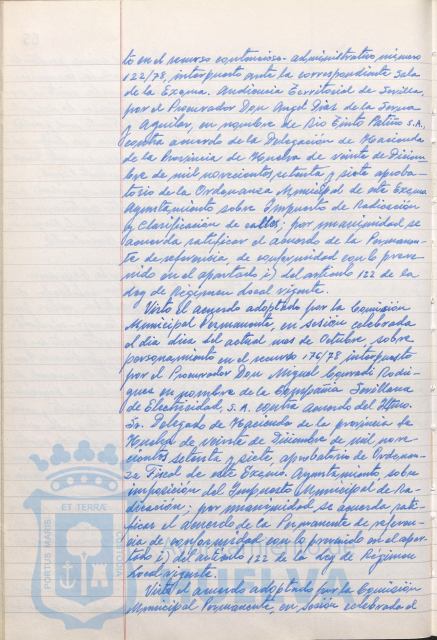 to en el recurso contencioso-administrativo número
122/78, interpuesto ante la correspondiente Sala
de la Excma. Audiencia Territorial de Sevilla,
por el Procurador Don Angel Díaz de la Serna
y Aguilar, en nombre de Rio Tinto Patiño S.A.,
contra acuerdo de la Delegación de Hacienda
de la Provincia de Huelva de veinte de Diciem
bre de mil novecientos setenta y siete aproba-
torio de la Ordenanza Municipal de este Excmo
Ayuntamiento sobre Impuesto de Radicación
y Clasificación de calles; por unanimidad se
acuerda ratificar el acuerdo de la Permanen-
te de referencia, de conformidad con lo preve-
nido en el apartado i) del artículo 122 de la
Ley de Régimen Local vigente.
Visto el acuerdo adoptado por la Comisión
Municipal Permanente, en sesión celebrada
el día diez del actual mes de Octubre, sobre
personamiento en el recurso 176/78, interpuesto
por el Procurador Don Miguel Conradi Rodrí-
guez en nombre de la Compañía Sevillana
de Electricidad, S.A. contra acuerdo del Iltmo.
Sr. Delegado de Hacienda de la provincia de
Huelva de veinte de Diciembre de mil nove
cientos setenta y siete aprobatorio de Ordenan-
za Fiscal de este Excmo. Ayuntamiento, sobre
imposición del Impuesto Municipal de Ra-
dicación; por unanimidad se acuerda rati-
ficar el acuerdo de la Permanente de referen-
cia de conformidad con lo prevenido en el apar-
tado i) del artículo 122 de la Ley de Régimen
Local vigente.
Visto el acuerdo adoptado por la Comisión
Municipal Permanente, en sesión celebrada el
PORTUS MARIS
ET TERRAE
CUSTODIA
HUELVA